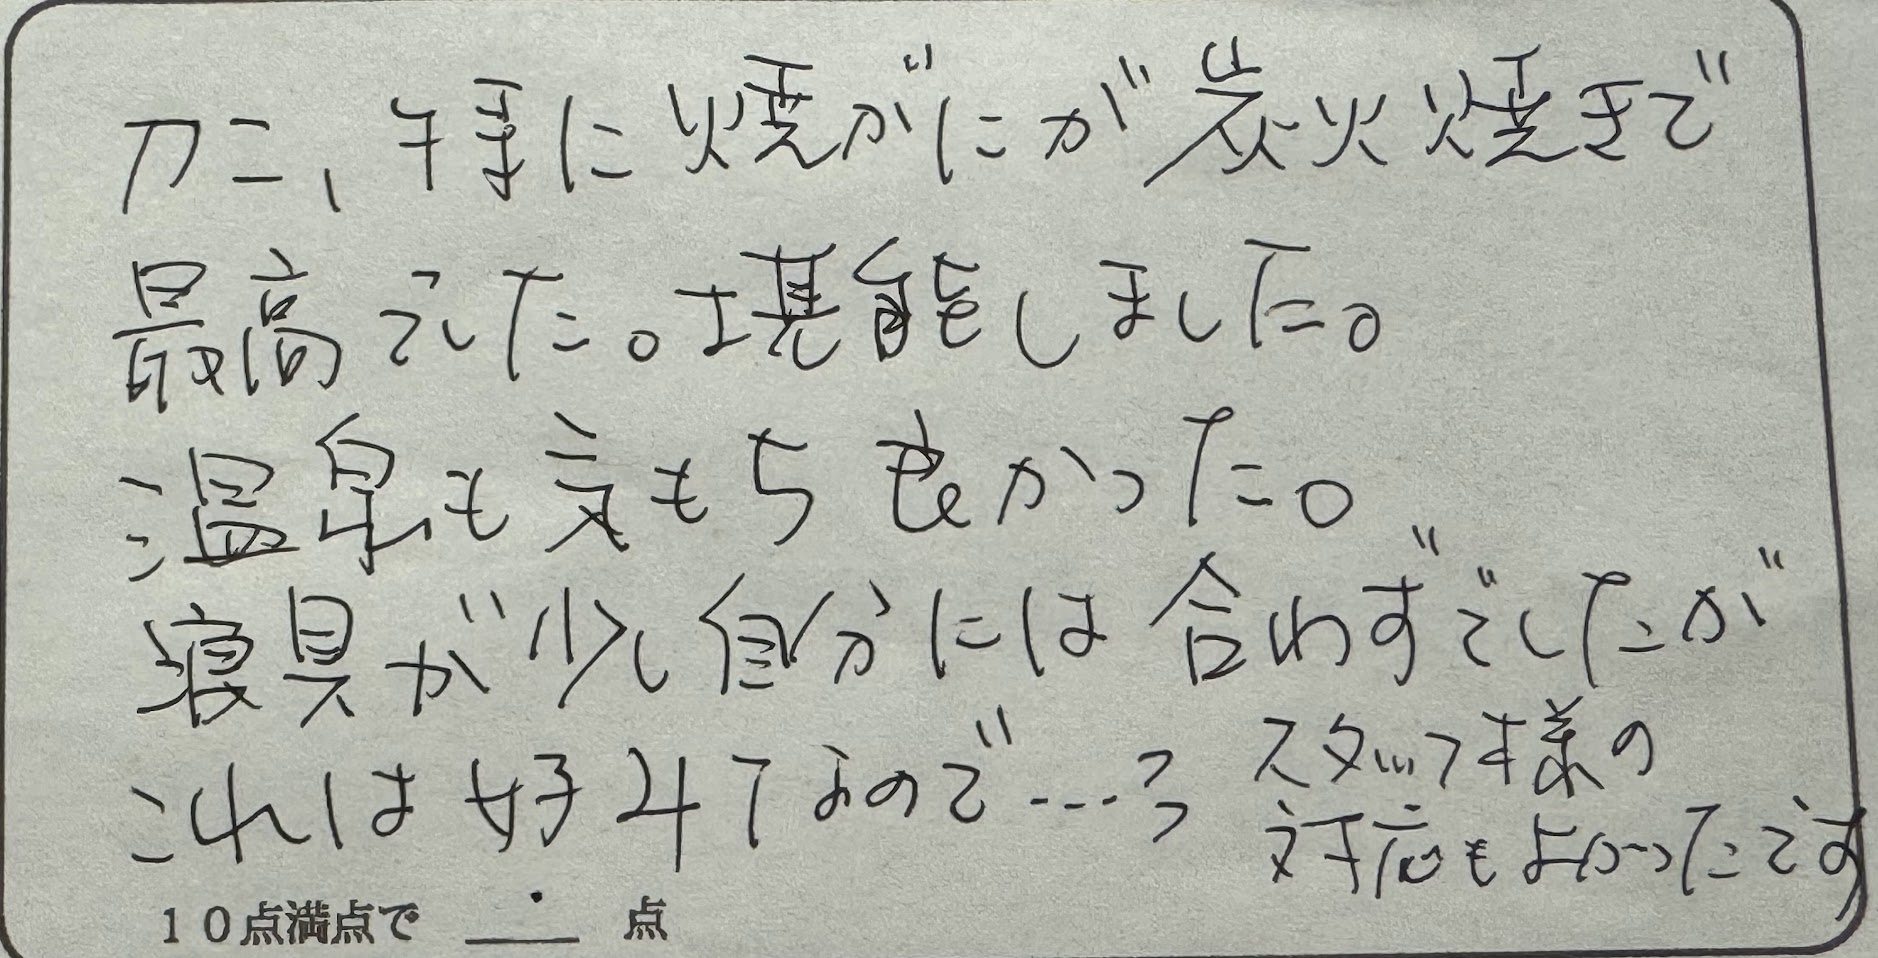 カニ、特に焼がにが炭火焼きで
最高でした。堪能しました。
温泉も気もち良かった。
寝具が少し自分には合わずでしたが
これは好みなので…。
スタッフ様の
対応もよかったです
10点満点で 点